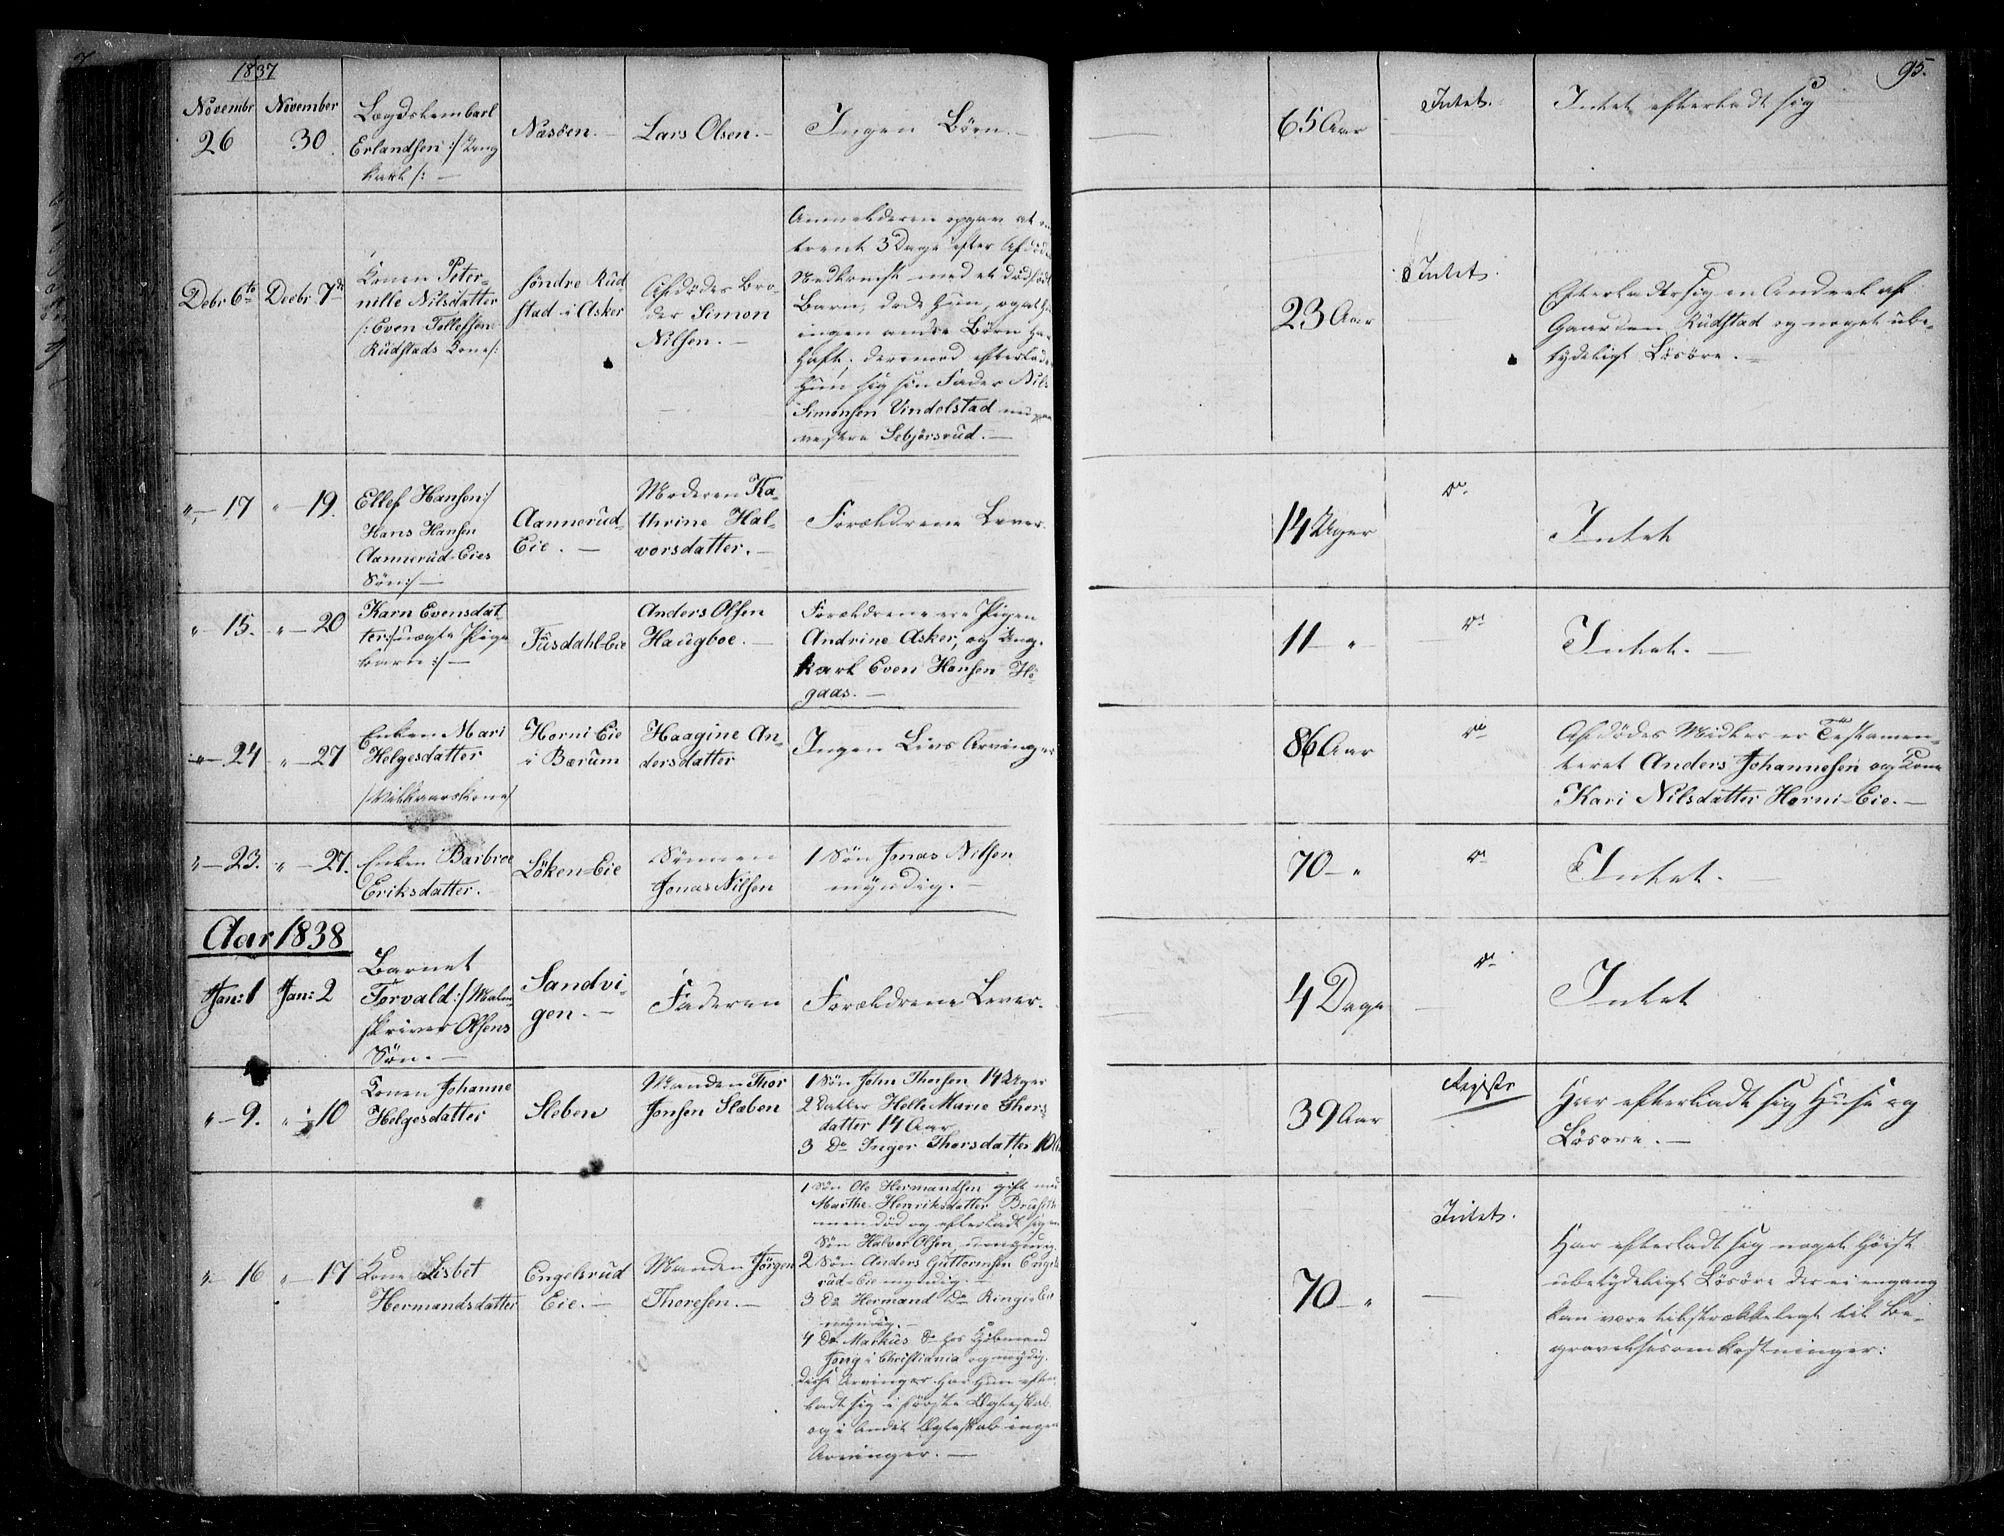 1837
95.
Novembr 26
November 30
Lægdslembarl
Erlandsen :/ Ung
karl /: —
Nasöen. —
Lars Olsen. —
Ingen Börn. —
65 Aar
Intet.
Intet efterladt sig
Debr 6te
Decbr 7de
Konen Peter-
nille Nilsdatter
/: Even Tollefsen
Rudstads Kone /:
söndre Rud
stad i Asker
Afdödes Bro-
der Simon
Nilsen. —
Anmelderen opgav at
trent 3 Dage efter Afdöde
Nedkomst med et dödfödt
Barn, döde Hun, og at
ingen andre Börn Ha
haft; derimod efterlader
Hun sig sin Fader Nils
Simonsen Vindelstad nu paa
vestre Sebjörsrud. —
23 Aar
Intet.
Efterlader sig en Andeel af
Gaarden Rudstad og noget ube-
tydeligt Lösöre. —
" — 17
" — 19.
Ellef Hansen :/
Hans Hansen
Aannerud-Eies
Sön :/ —
Aannerud-
Eie. —
Moderen Ka-
thrine Hal-
vorsdatter. —
Forældrene Lever.
14 Uger
do
Intet
" — 15.
" — 20
Karn Evensdat
ter :/ uægte Pige
barn :/ —
Fusdahl-Eie
Anders Olsen
Haugboe. —
Forældrene ere Pigen
Andrine Asker, og Ung-
karl Even Hansen Hö-
gaas. —
11 — "
do
Intet. —
" — 24
" — 27
Enken Mari
Helgesdatter
/ Vilkaarskone /
Horni Eie
i Bærum
Haagine An-
dersdatter
Ingen Livs Arvinger
86 Aar
do
Afdödes Midler er Testamen-
teret Anders Johannesen og Kone
Kari Nilsdatter Horni-Eie. —
" — 23.
" — 27.
Enken Barbroe
Eriksdatter.
Löken-Eie
Sönnen
Jonas Nilsen
1 Sön Jonas Nilsen
myndig. —
70 — "
do
Intet. —
Aar 1838
Jan: 1
Jan: 2
Barnet
Torvald :/ Maler
skriver Olsens
Sön. —
Sandvi-
gen. —
Faderen
Forældrene Lever.
4 Dage
do
Intet
" — 9.
" — 10
Konen Johanne
Helgesdatter
Sleben
Manden Thor
Jonsen Slæben
1 Sön John Thorsen 14 Uger
2 Datter Helle Marie Thors
datter 14 Aar
3 Do Inger Thorsdatter 10
39 Aar
Registr
Har efterladt sig Huse og
Lösöre. —
" — 16
" — 17
Kone Lisbet
Hermandsdatter
Engelsrud
Eie. —
Manden Jörgen
Thoresen. —
1 Sön Ole Hermandsen gift med
Marthe Henriksdatter
men död og efterladt sig en
Sön Halvor Olsen, umyndig.
2 Sön Anders Guttormsen Engels
rud-Eie myndig. —
3 Do Hermand Do Ringi-Eie
myndig. —
4 Do Markus Do hos Kjöbmand
i Christiania og myndig.
disse Arvinger har Hun efter
ladt sig i förste Ægteskab
og i andet Ægteskab ingen
Arvinger. —
70 — "
Intet.
Har efterladt sig noget Höist
ubetydeligt Lösöre der ei engang
kan være tilstrækkeligt til Be-
gravelsesomkostninger: